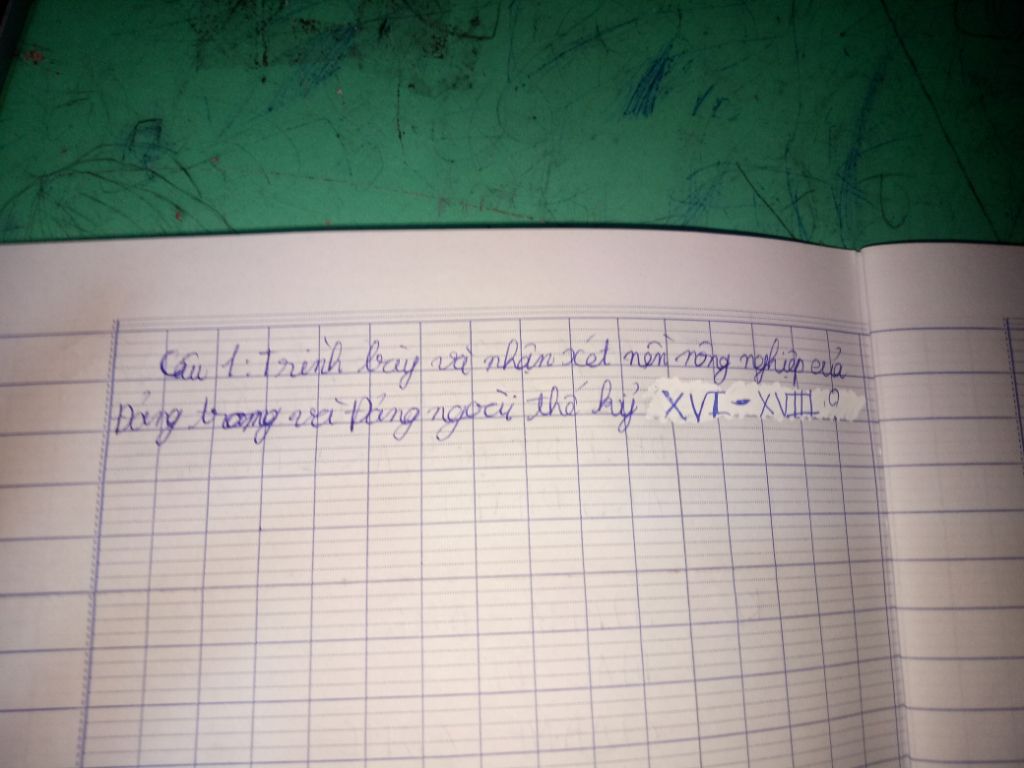 Câu 1: Trình bày và nhận xét nền nông nghiệp của
Đáng trong và Đáng ngoài thế kỷ XVI - XVIII?